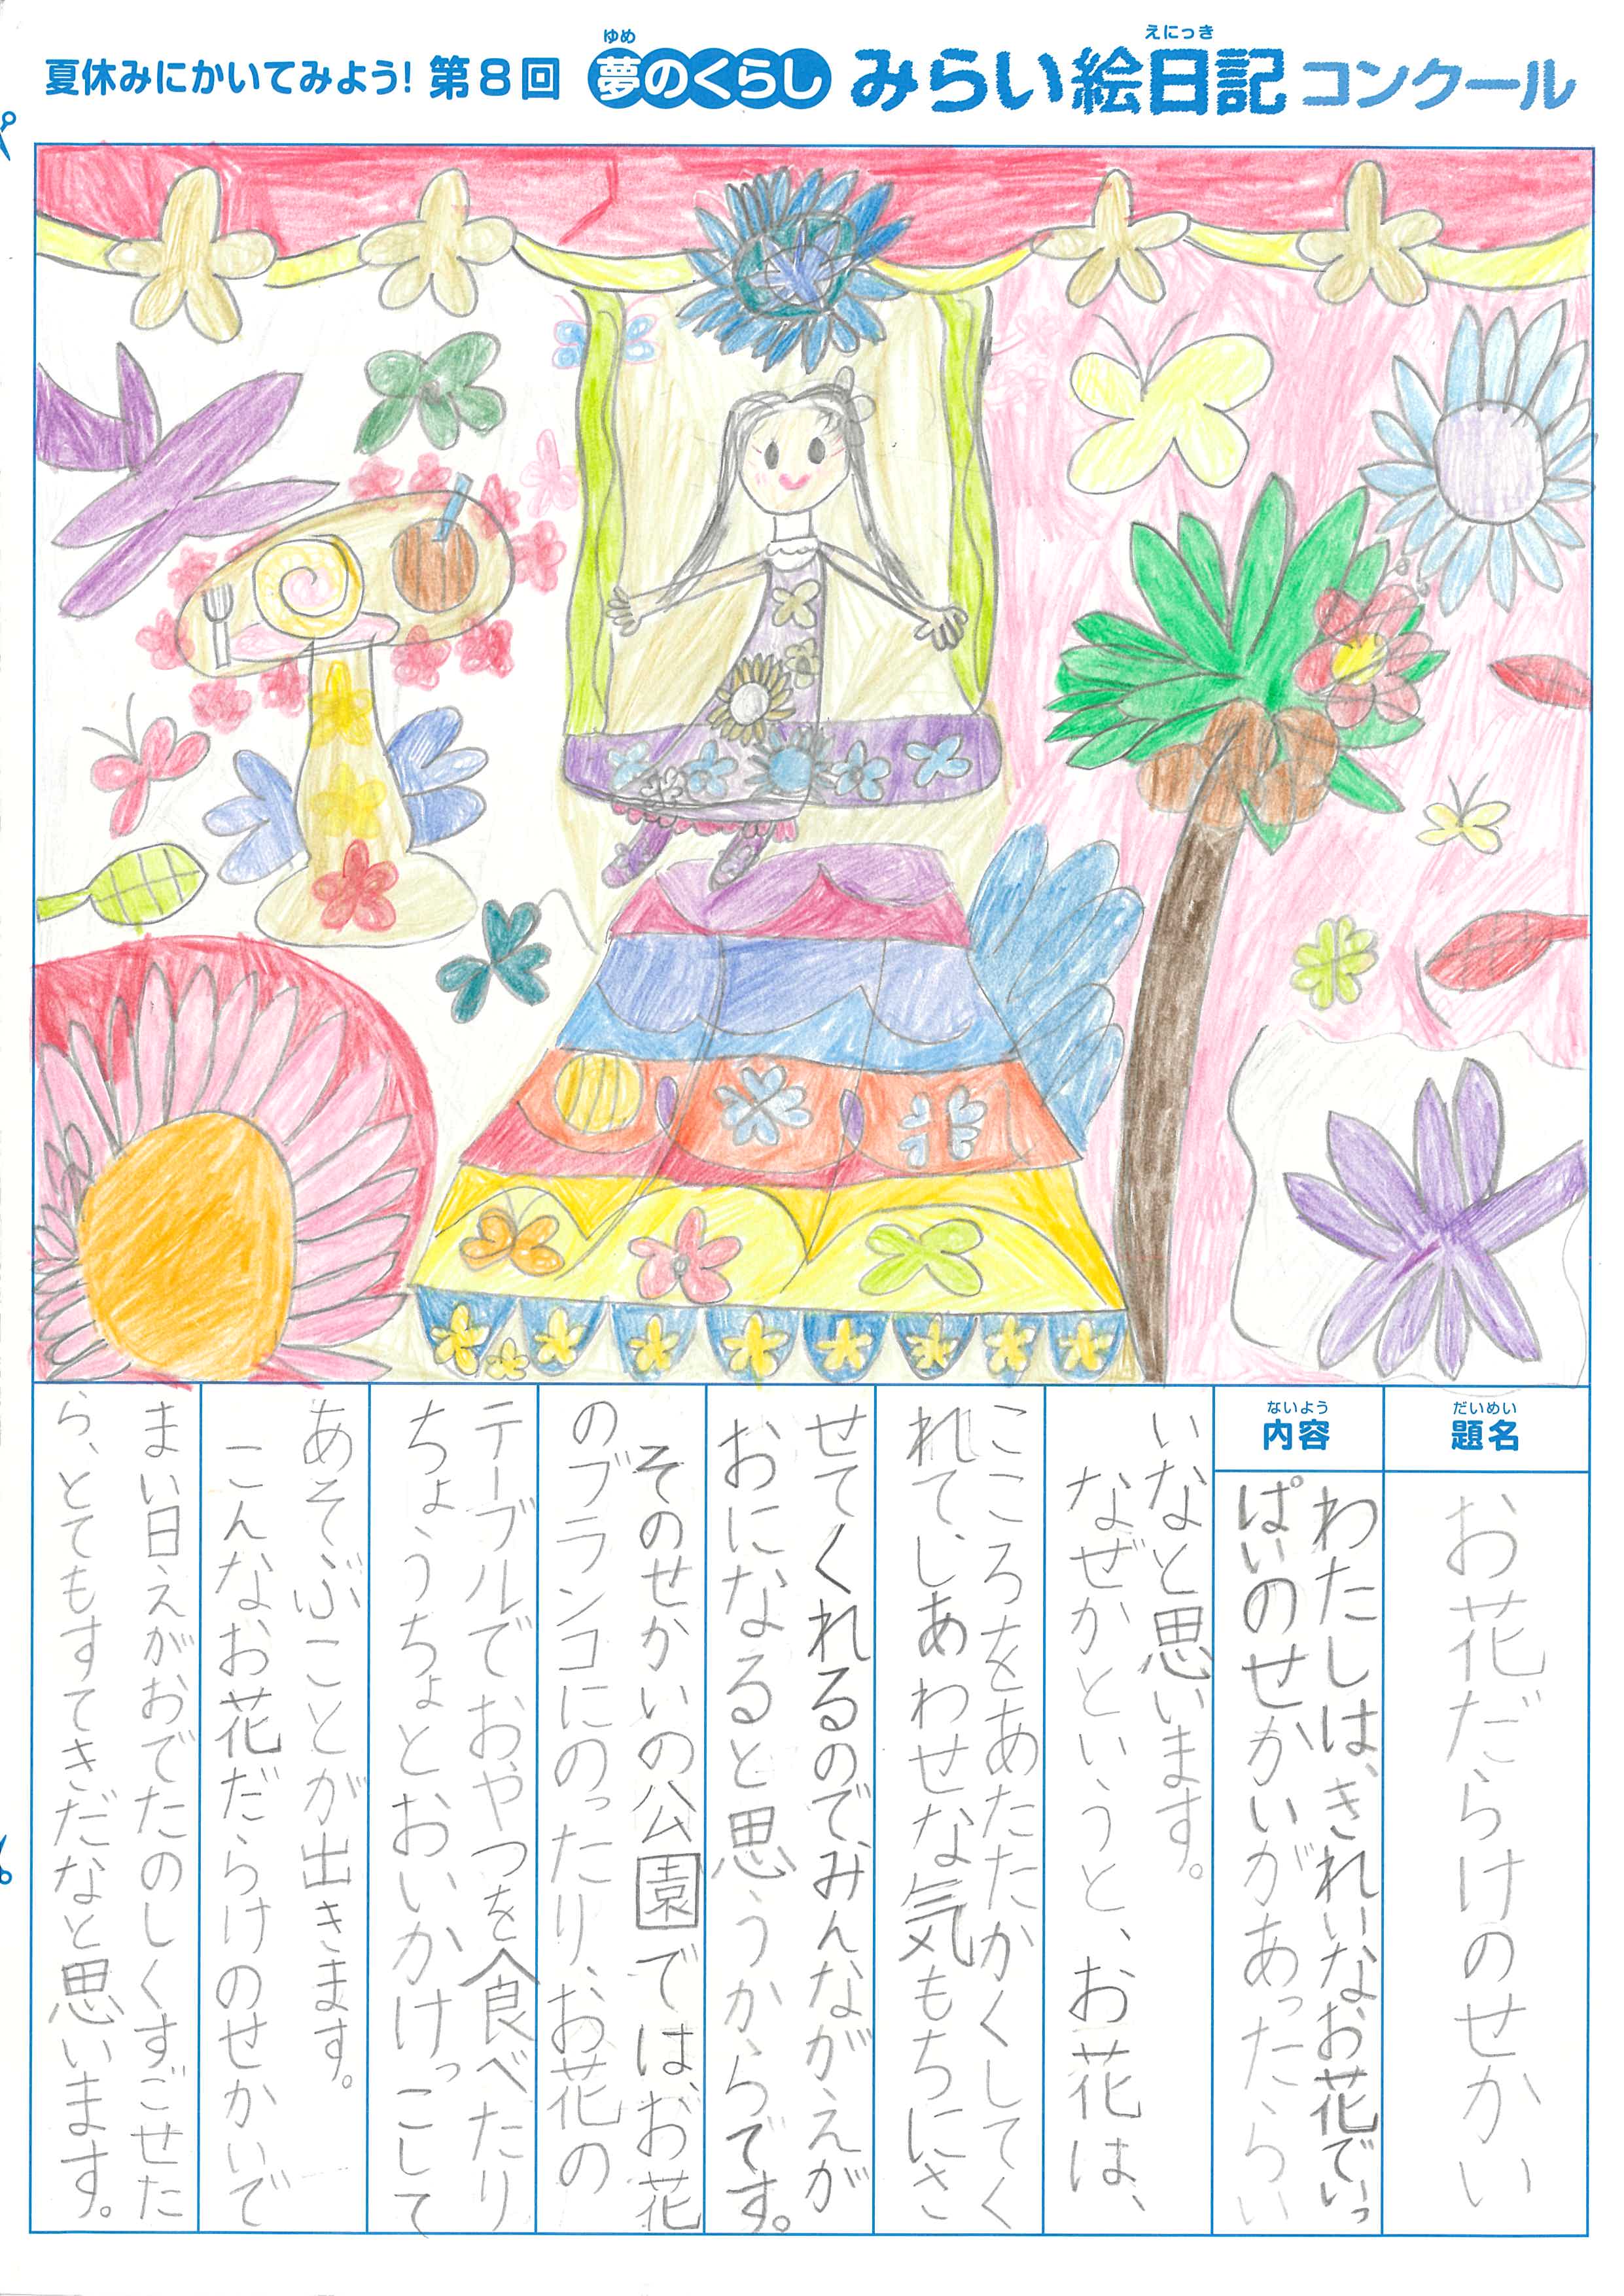 夏休みにかいてみよう！第8回 夢のくらし みらい絵日記 コンクール
ゆめ
えにっき
だいめい
題名
お花だらけのせかい
ないよう
内容
わたしは、きれいなお花でいっ
ぱいのせかいがあったらい
いなと思います。
なぜかというと、お花は、
こころをあたたかくしてく
れて、しあわせな気もちにさ
せてくれるのでみんながえが
おになると思うからです。
そのせかいの公園では、お花
のブランコにのったり、お花の
テーブルでおやつを食べたり
ちょうちょとおいかけっこして
あそぶことが出きます。
こんなお花だらけのせかいで
まい日えがおでたのしくすごせた
ら、とてもすてきだなと思います。